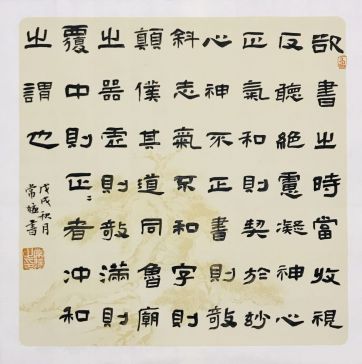 欲書之時當收視
反聽絕慮凝神心
正氣和則契於妙
心神不正書則敧
斜志氣不和字則
顛僕其道同魯廟
之器虛則敧滿則
覆中則正々者冲和
之謂也
戊戌秋月
常書